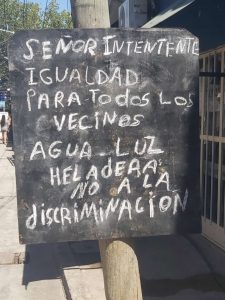 SEÑOR INTENTENTE
IGUALDAD
PARA-TODOS LOS
VECINOS
AGUA_LUZ
HELADERAS
NO A LA
discriMINACIÓN